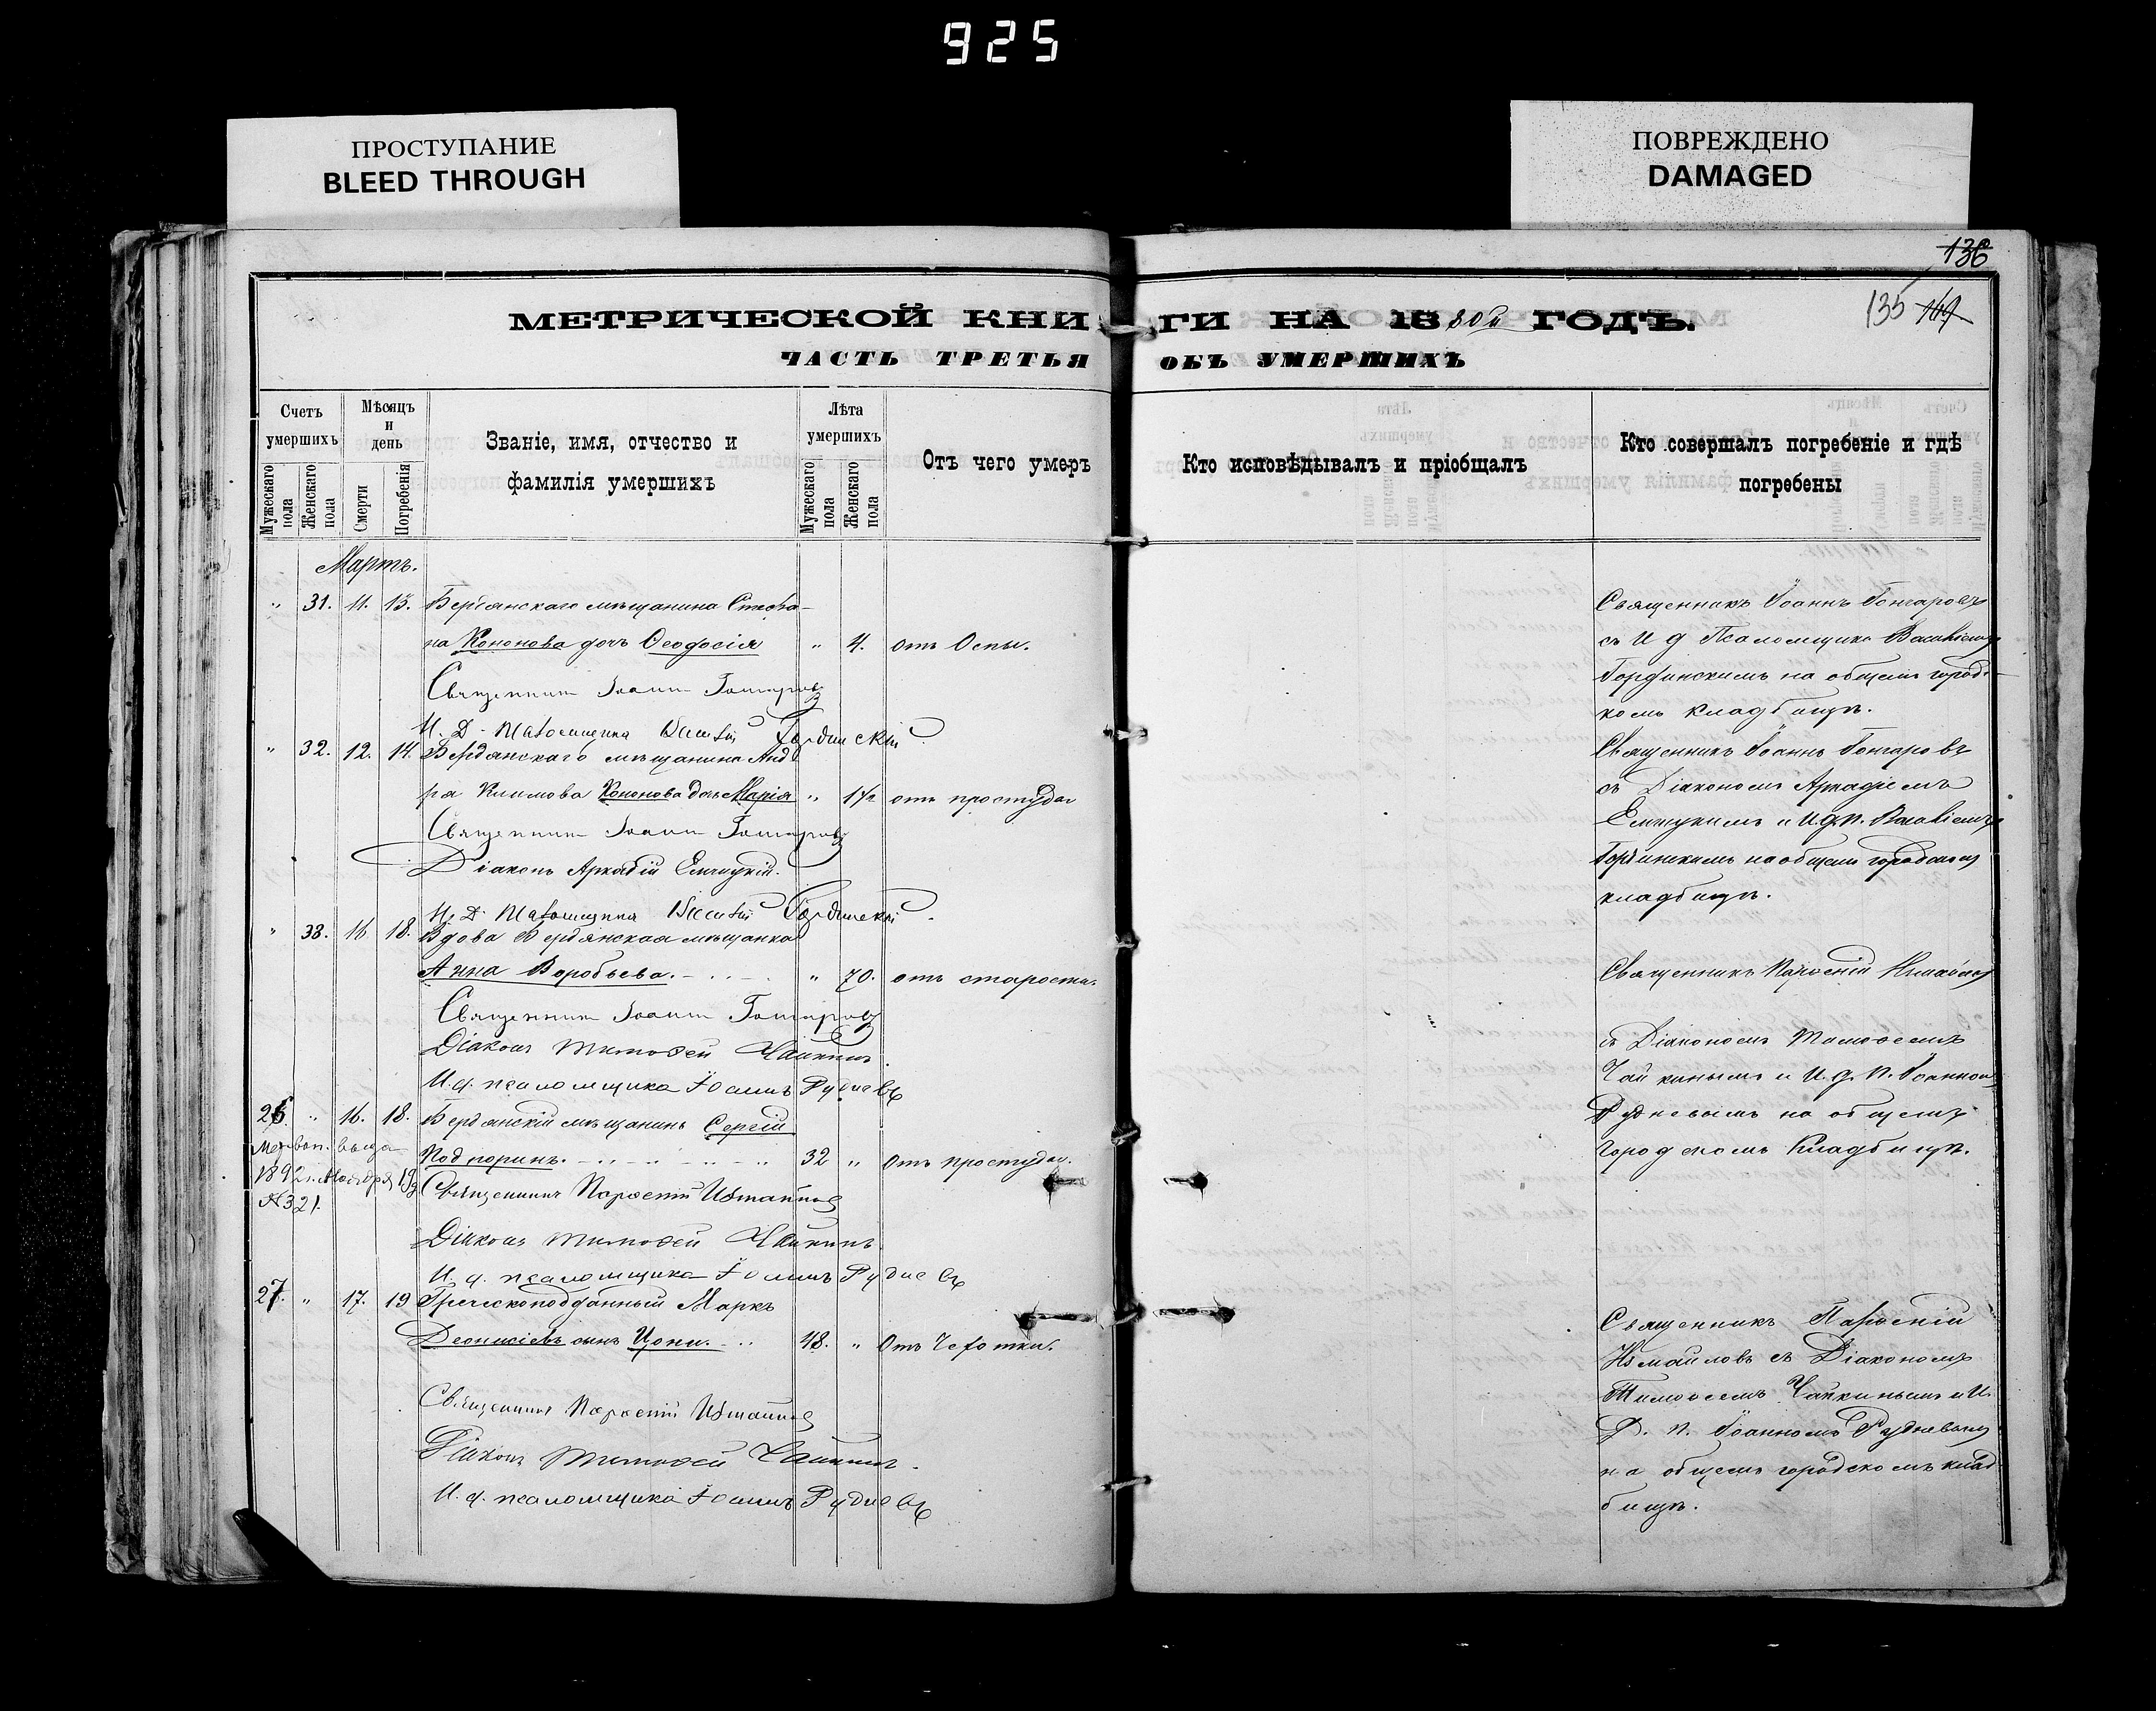 925
ПРОСТУПАНИЕ
BLEED THROUGH
ПОВРЕЖДЕНО
DAMAGED
136
135 169
МЕТРИЧЕСКОЙ КНИГИ НА 1880й ГОДЪ.
ЧАСТЬ ТРЕТЬЯ ОБЪ УМЕРШИХЪ
Счетъ умершихъ
Мужескаго пола
Женскаго пола
Мѣсяцъ и день
Смерти
Погребенія
Званіе, имя, отчество и фамилія умершихъ
Лѣта умершихъ
Мужескаго пола
Женскаго пола
Отъ чего умеръ
Кто исповѣдывалъ и пріобщалъ
Кто совершалъ погребеніе и гдѣ погребены
Мартъ.
" 31. 11. 13. Бердянскаго мѣщанина Стефа-
на Кононова дочь Ѳеодосія " 4. отъ Оспы.
Священникъ Іоаннъ Гончаровъ
И. Д. Псаломщика Василій Гординскій
" 32. 12. 14. Бердянскаго мѣщанина Анд
рея Климова Кононова дочь Марія " 1½ отъ простуды
Священникъ Іоаннъ Гончаровъ
Діаконъ Аркадій Емчицкій.
И. Д. Псаломщика Василій Гординскій.
" 33. 16 18. Вдова Бердянская мѣщанка
Анна Воробьева. " 70. отъ старости.
Священникъ Іоаннъ Гончаровъ
Діаконъ Тимоѳей Чайкинъ.
И. д. псаломщика Іоаннъ Рудневъ
26. " 16. 18. Бердянскій мѣщанинъ Сергій
Подпоринъ. 32 " Отъ простуды.
выда
1892 г. Ноября 19
№ 321.
Священникъ Парѳеній Измайловъ
Діаконъ Тимоѳей Чайкинъ.
И. д. псаломщика Іоаннъ Рудневъ
27. " 17. 19 Греческоподданный Маркъ
Деонисіевъ сынъ Цони. 48. " Отъ Чахотки.
Священникъ Парѳеній Измайловъ
Діаконъ Тимоѳей Чайкинъ.
И. д. псаломщика Іоаннъ Рудневъ
Священникъ Іоаннъ Гончаровъ
съ И д Псаломщика Василіемъ
Гординскимъ на общемъ город-
комъ кладбищѣ.
Священникъ Іоаннъ Гончаровъ
съ Діакономъ Аркадіемъ
Емчицкимъ и И. д. П. Василіемъ
Гординскимъ на общемъ городскомъ
кладбищѣ.
Священникъ Парѳеній Измайловъ
съ Діакономъ Тимоѳеемъ
Чайкинымъ и И. д. П. Іоанномъ
Рудневымъ на общемъ
городскомъ Кладбищѣ.
Священникъ Парѳеній
Измайловъ съ Діакономъ
Тимоѳеемъ Чайкинымъ и И.
Д. П. Іоанномъ Рудневымъ
на общемъ городскомъ клад
бищѣ.